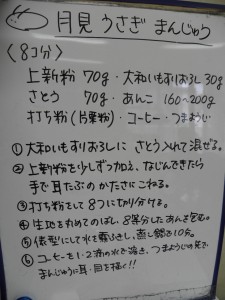 月見うさぎ まんじゅう
〈8コ分〉
上新粉 70g・大和いもすりおろし 30g
さとう 70g・あんこ 160〜200g
打ち粉(片栗粉)・コーヒー・つまようじ
①大和いもすりおろしに さとう入れて混ぜる。
②上新粉を少しずつ加え、なじんできたら
手で耳たぶの かたさにこねる。
③打ち粉をして 8つに切り分ける。
④生地を丸めてのばし、8等分したあんを包む。
⑤俵型にして水を霧ふきし、蒸し器で10分。
⑥コーヒーを1・2滴の水で溶き、つまようじの先で
まんじゅうに耳・目を描く!!